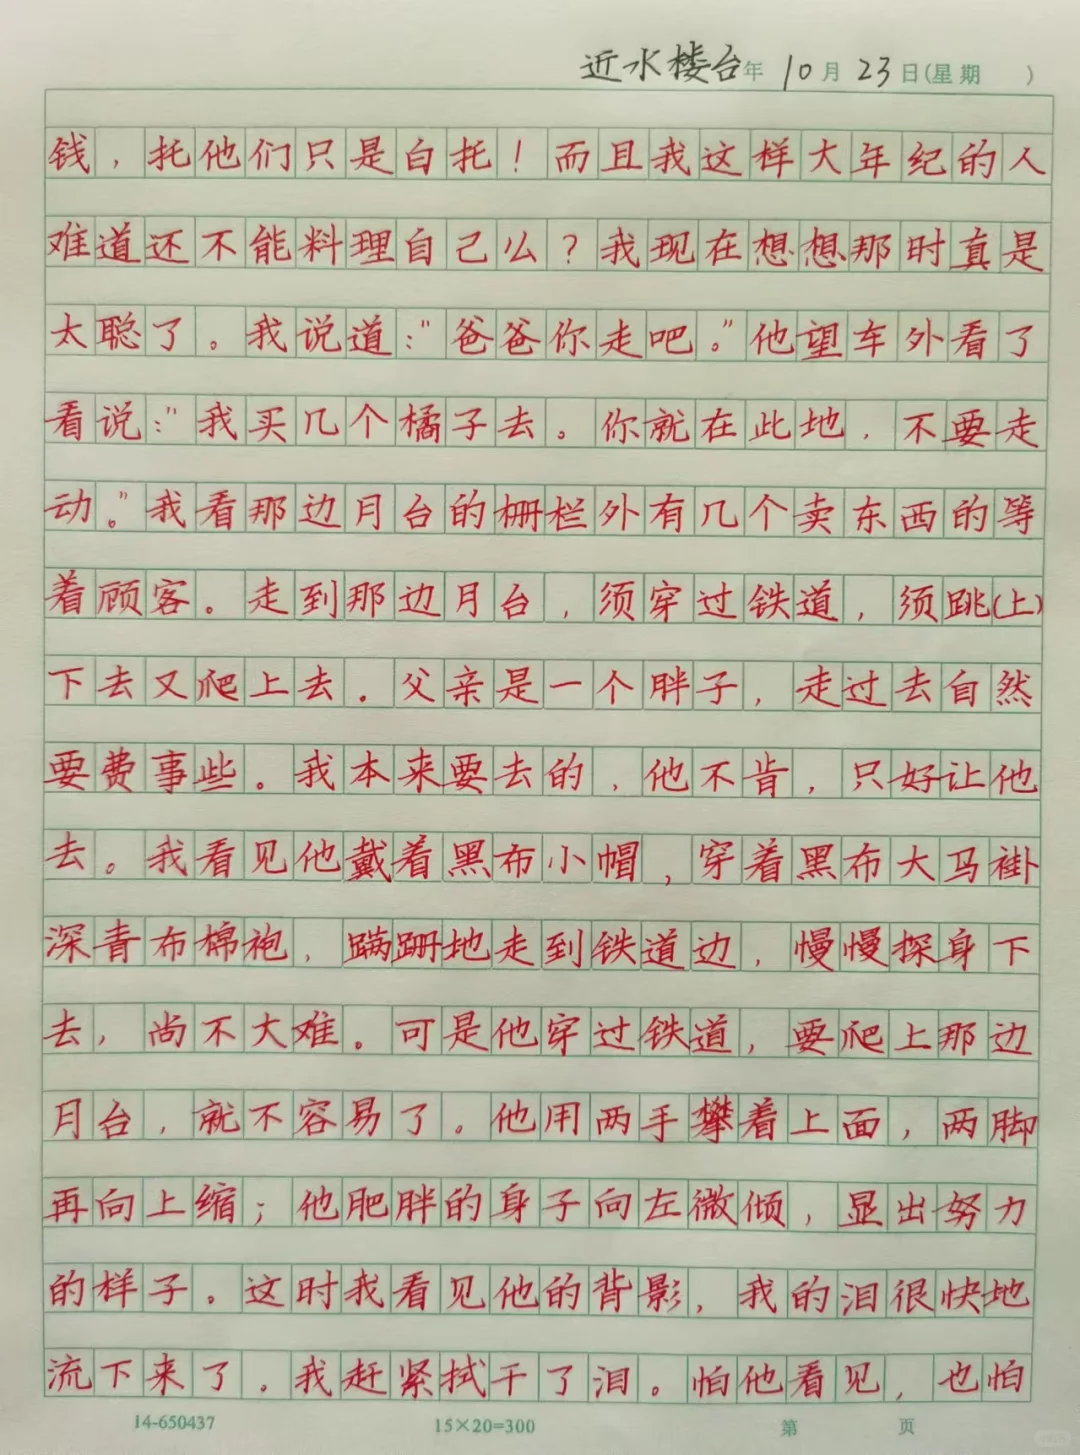 近水楼台年 10月 23日(星期 )
钱，托他们只是白托！而且我这样大年纪的人
难道还不能料理自己么？我现在想想那时真是
太聪了。我说道："爸爸你走吧。"他望车外看了
看说："我买几个橘子去。你就在此地，不要走
动。"我看那边月台的栅栏外有几个卖东西的等
着顾客。走到那边月台，须穿过铁道，须跳(上)
下去又爬上去。父亲是一个胖子，走过去自然
要费事些。我本来要去的，他不肯，只好让他
去。我看见他戴着黑布小帽，穿着黑布大马褂
深青布棉袍，蹒跚地走到铁道边，慢慢探身下
去，尚不大难。可是他穿过铁道，要爬上那边
月台，就不容易了。他用两手攀着上面，两脚
再向上缩；他肥胖的身子向左微倾，显出努力
的样子。这时我看见他的背影，我的泪很快地
流下来了。我赶紧拭干了泪。怕他看见，也怕
14-650437 15×20=300 第 页